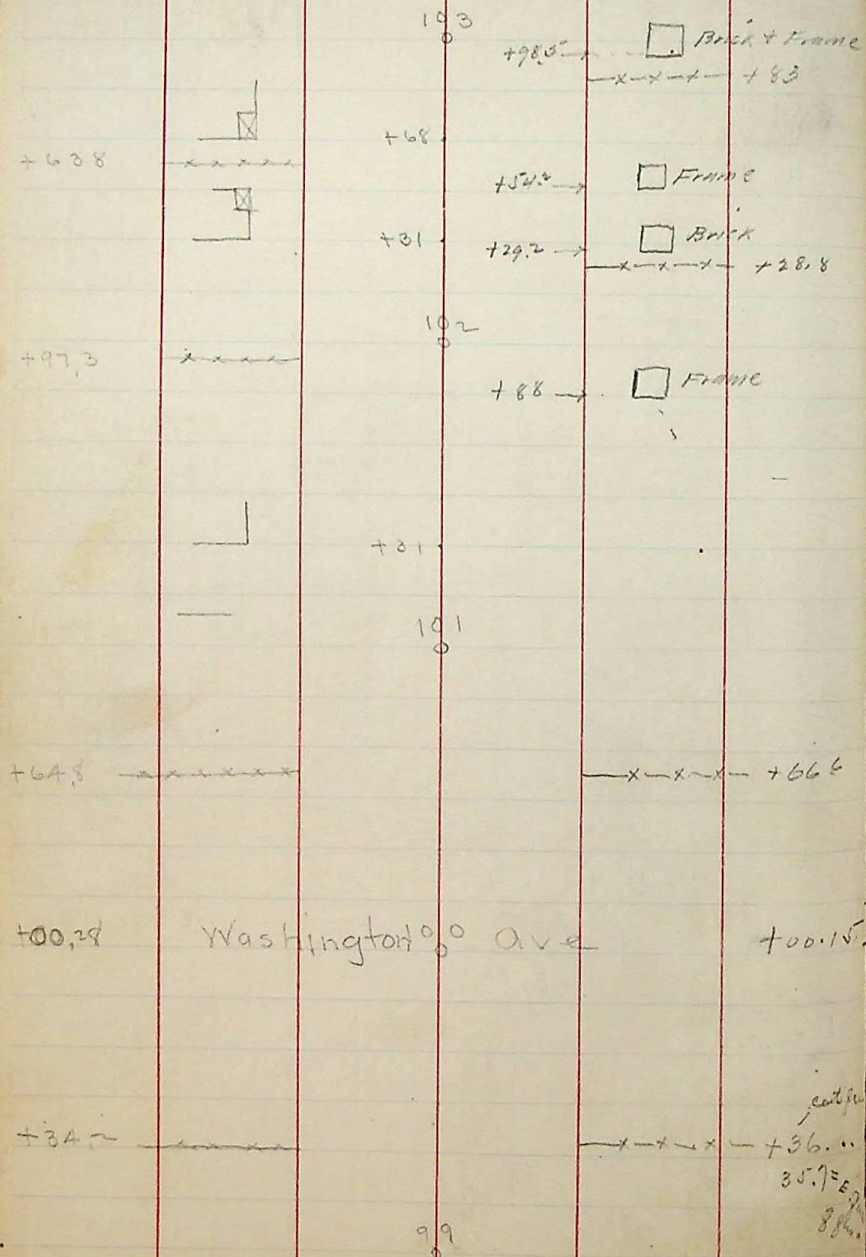 103
+98.5 Brick + Frame
+83
+68
+63.8
+54.2 Frame
+31 +29.2 Brick
+28.8
102
+97.3
+88 Frame
+31
101
+64.8 +66.6
+00.28 Washington 00 ave +00.15
+34.2 +36.
35.7 =
99